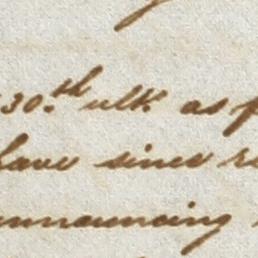 30.th ult. as
have since
announcing